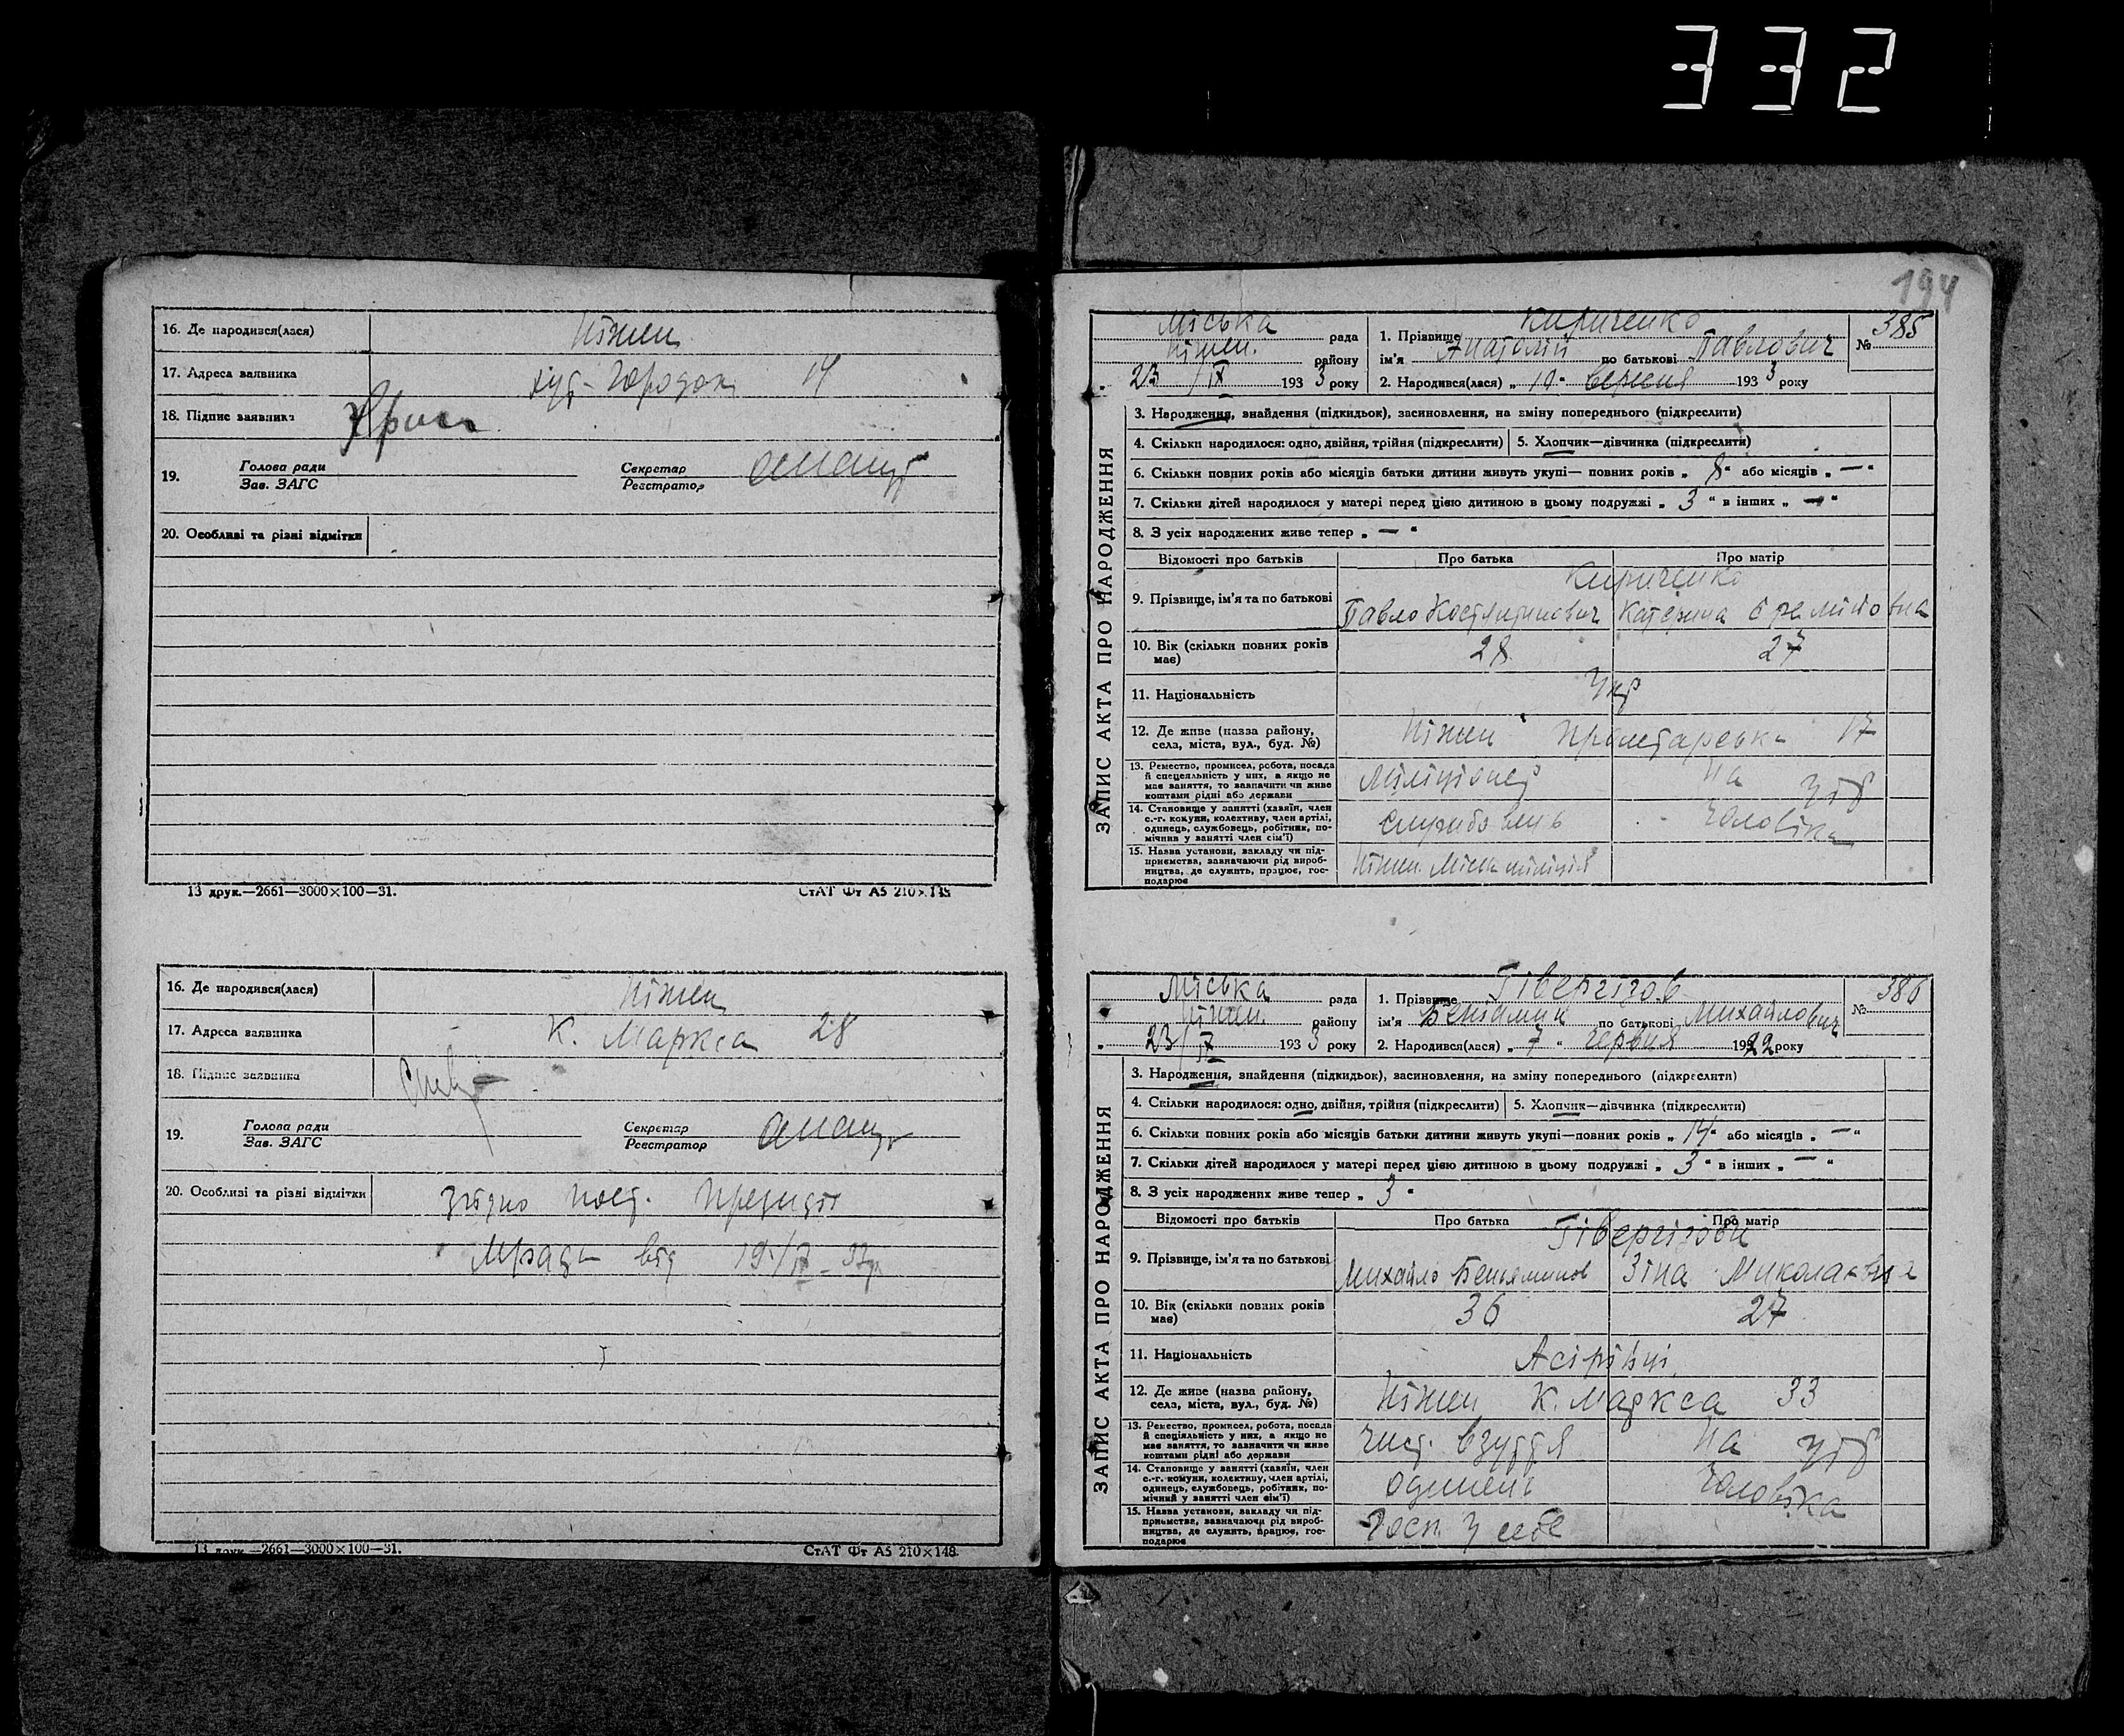 332
16. Де народився(лася) Ніжен
17. Адреса заявника хут. Городок 14
18. Підпис заявника
19. Голова ради
Зав. ЗАГС
Секретар
Реєстратор
20. Особливі та різні відмітки
13 друк.—2661—3000×100—31. СтАТ Фт А5 210×148
16. Де народився(лася) Ніжен
17. Адреса заявника К. Маркса 28
18. Підпис заявника
19. Голова ради
Зав. ЗАГС
Секретар
Реєстратор
20. Особливі та різні відмітки Згідно пост. президії
Мради від 19/IX-33р
13 друк.—2661—3000×100—31. СтАТ Фт А5 210×148
194
ЗАПИС АКТА ПРО НАРОДЖЕННЯ
Міська рада
Ніжен. району
23/IX 1933 року
1. Прізвище Кириченко
ім'я Анатолій по батькові Павлович
№ 385
2. Народився(лася) „ 10 " вересня 1933 року
3. Народження, знайдення (підкидьок), засиновлення, на зміну попереднього (підкреслити)
4. Скільки народилося: одно, двійня, трійня (підкреслити) 5. Хлопчик—дівчинка (підкреслити)
6. Скільки повних років або місяців батьки дитини живуть укупі— повних років „ 8 " або місяців „ — "
7. Скільки дітей народилося у матері перед цією дитиною в цьому подружжі „ 3 " в інших „ — "
8. З усіх народжених живе тепер „ — "
Відомості про батьків Про батька Про матір
Кириченко
9. Прізвище, ім'я та по батькові Павло Костянтинович Катерина
10. Вік (скільки повних років має) 28 27
11. Національність Укр
12. Де живе (назва району, села, міста, вул., буд. №) Ніжен Пролетарська 17
13. Ремество, промисел, робота, посада
й спеціяльність у них, а якщо не
має заняття, то зазначити чи живе
коштами рідні або держави
Міліціонер на утр
14. Становище у занятті (хазяїн, член
с.-г. комуни, колективу, член артілі,
одинець, службовець, робітник, по-
мічник у занятті член сім'ї)
службовець чоловіка
15. Назва установи, закладу чи під-
приємства, зазначаючи рід вироб-
ництва, де служить, працює, гос-
подарює
Ніжен. Міська міліція
ЗАПИС АКТА ПРО НАРОДЖЕННЯ
Міська рада
Ніжен. району
23/IX 1933 року
1. Прізвище Гівергізов
ім'я Беніамин по батькові Михайлович
№ 386
2. Народився(лася) „ 7 " червня 1922 року
3. Народження, знайдення (підкидьок), засиновлення, на зміну попереднього (підкреслити)
4. Скільки народилося: одно, двійня, трійня (підкреслити) 5. Хлопчик—дівчинка (підкреслити)
6. Скільки повних років або місяців батьки дитини живуть укупі—повних років „ 14 " або місяців „ — "
7. Скільки дітей народилося у матері перед цією дитиною в цьому подружжі „ 3 " в інших „ — "
8. З усіх народжених живе тепер „ 3 "
Відомості про батьків Про батька Про матір
Гівергізови
9. Прізвище, ім'я та по батькові Михайло Беньяминов Зіна Миколаєвна
10. Вік (скільки повних років має) 36 27
11. Національність Асірійці
12. Де живе (назва району, села, міста, вул., буд. №) Ніжен К. Маркса 33
13. Ремество, промисел, робота, посада
й спеціяльність у них, а якщо не
має заняття, то зазначити чи живе
коштами рідні або держави
чист. взуття на утр
14. Становище у занятті (хазяїн, член
с.-г. комуни, колективу, член артілі,
одинець, службовець, робітник, по-
мічний у занятті член сім'ї)
одинець чоловіка
15. Назва установи, закладу чи під-
приємства, зазначаючи рід вироб-
ництва, де служить, працює, гос-
подарює
Госп. у себе